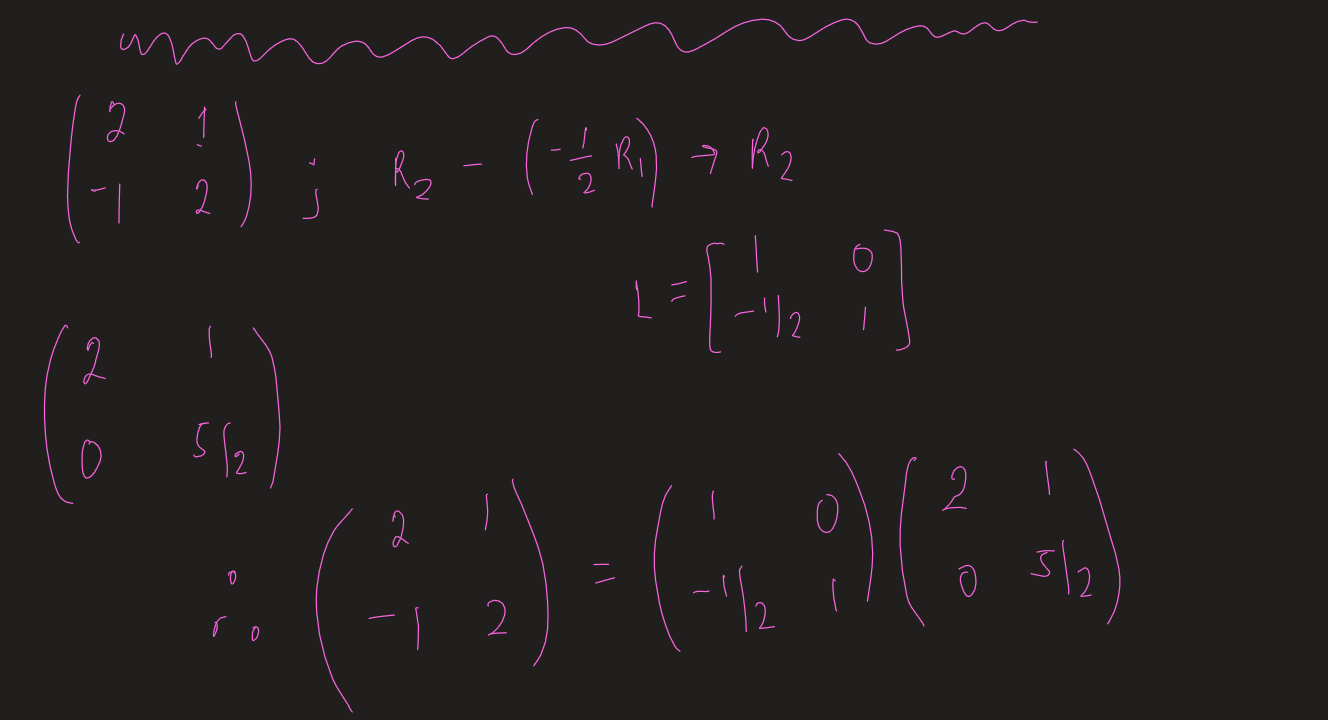 ( 2 1 ; -1 2 ) ; R₂ - ( -1/2 R₁ ) → R₂
L = [ 1 0 ; -1/2 1 ]
( 2 1 ; 0 5/2 )
∴ ( 2 1 ; -1 2 ) = ( 1 0 ; -1/2 1 ) ( 2 1 ; 0 5/2 )